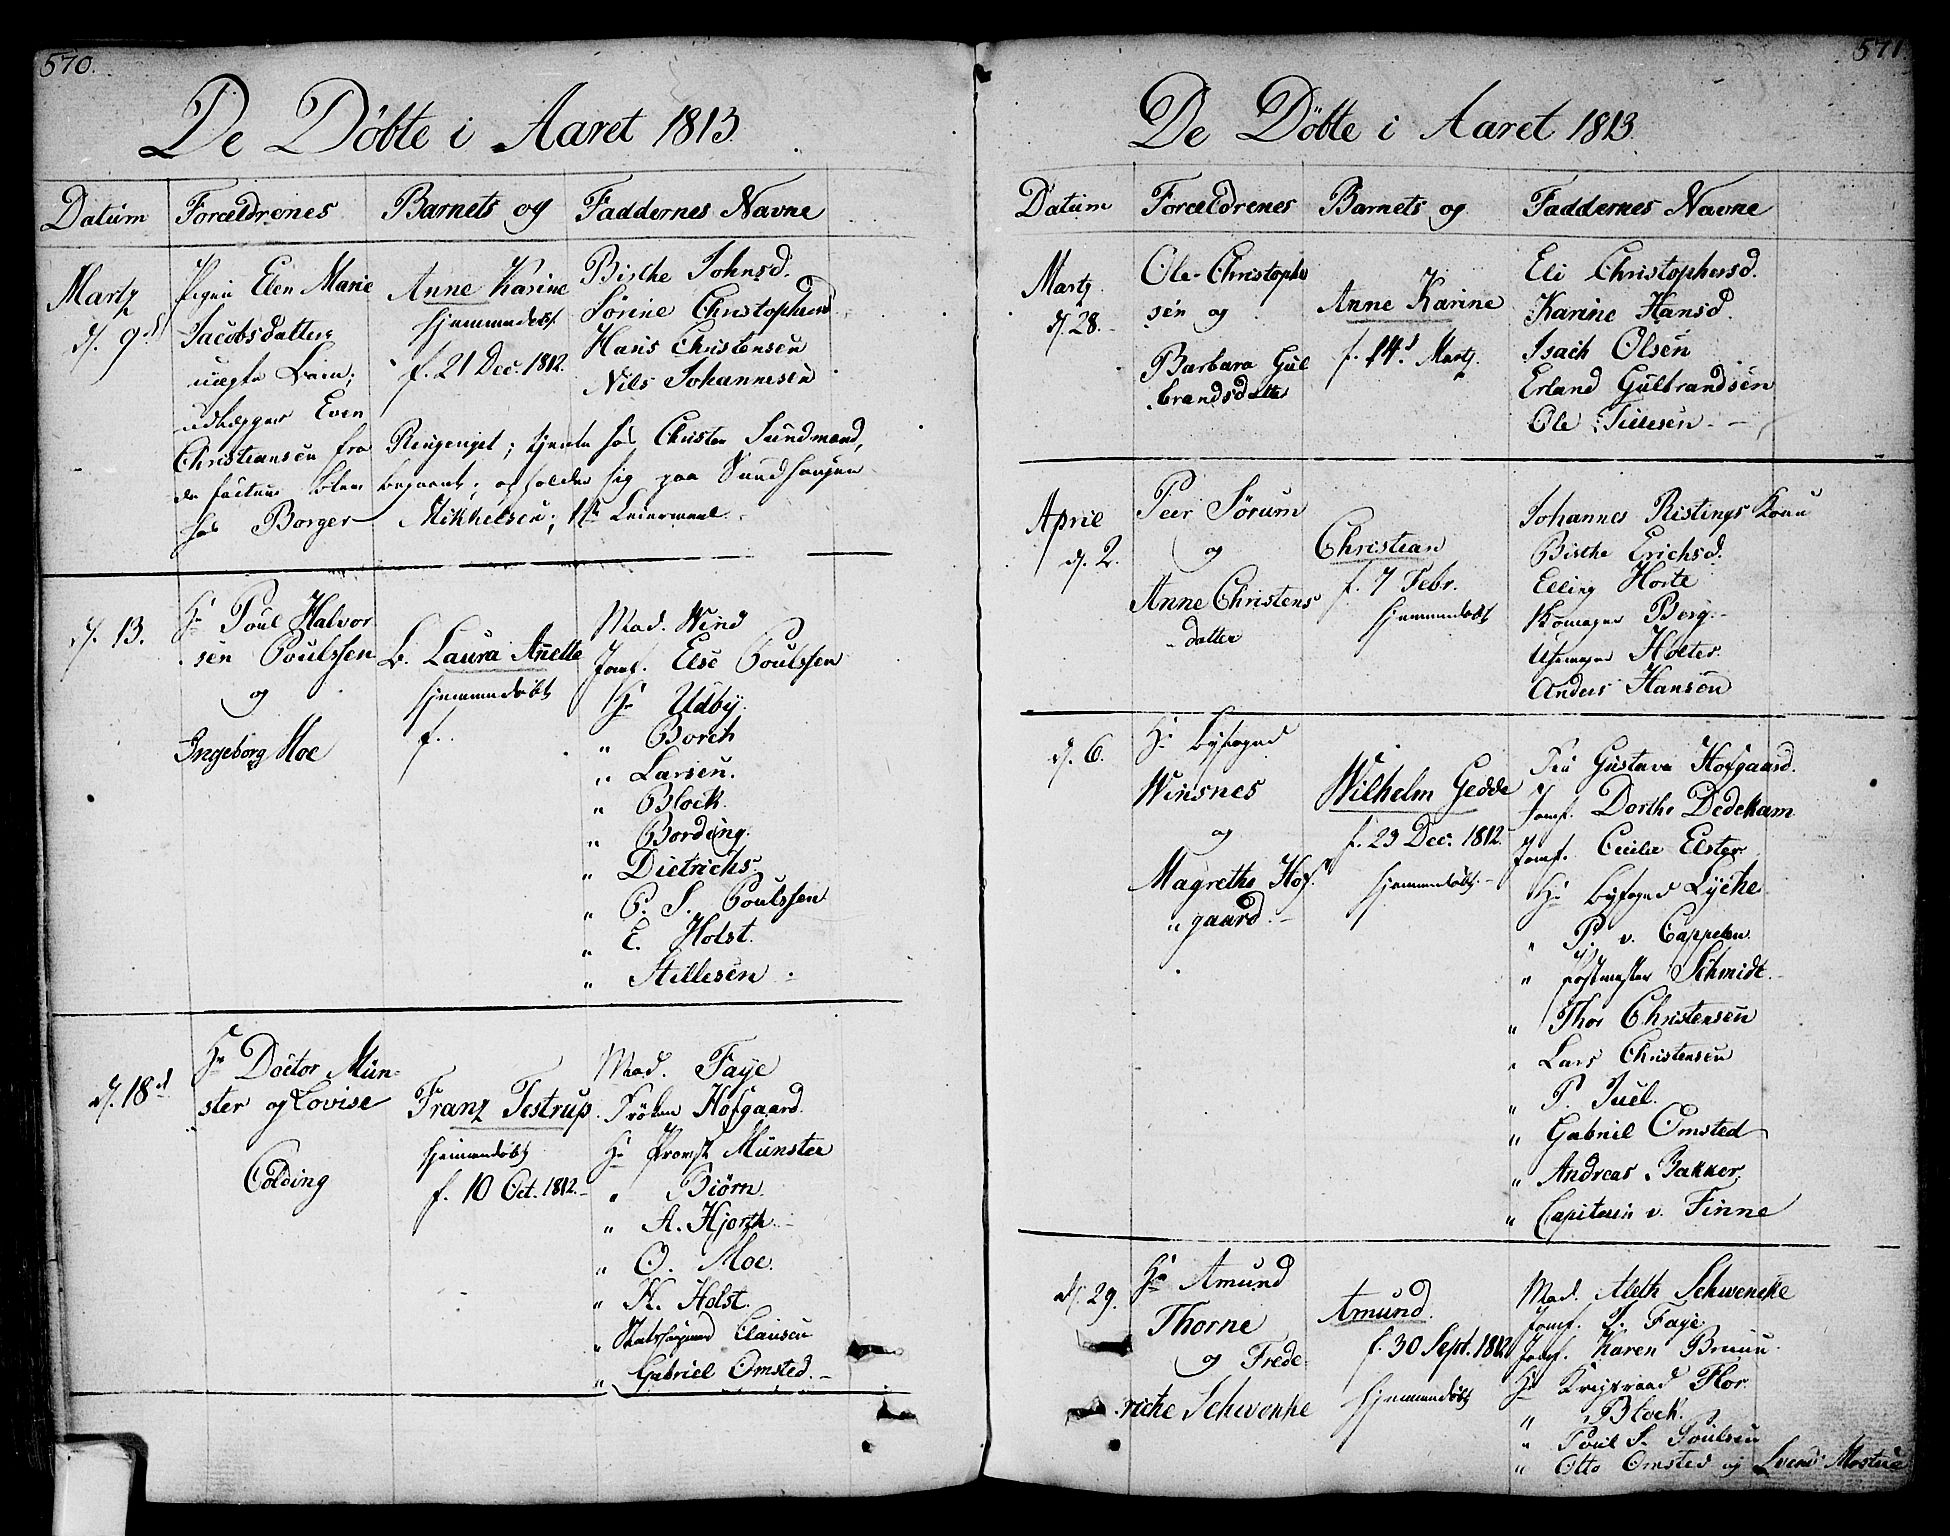 570.
De Döbte i Aaret 1813.
Datum Forældrenes Barnets og Faddernes Navne
Martz
d. 9d
Pigen Elen Marie
Jacobsdatter
uægte Barn;
udlægger Even
Christiansen fra Ringeriget; tjente hos Christen Sundmand,
hos Borger Mikkelsen; 1te Leiermaal.
Anne Karine
hjemmedøbt
f. 21 Dec. 1812.
Birthe Johnsd.
Sörine Christophersd
Hans Christensen
Nils Johannesen
d. 13.
Hr Poul Halvor
sen Poulssen
og
Ingeborg Moe
L. Laura Anette
hjemmedøbt
f.
Mad. Wind
Jomf. Else Poulssen
Hr Udby.
" Borch
" Larsen.
" Block.
" Bording.
" Dietrichs.
" P. S. Poulssen
" E. Holst.
" Stillesen
d. 18d
Hr Doctor Mün-
ster og Lovise
Colding
Franz Testrup
hjemmedøbt
f. 10 Oct. 1812.
Mad. Faye
Fröken Hofgaard.
Hr Provst Münster
" Biörn.
" A. Hjorth.
" O. Moe.
" H. Holst.
" Clausen
" Gabriel Omsted.
571.
De Döbte i Aaret 1813.
Datum Forældrenes Barnets og Faddernes Navne
Martz
d. 28.
Ole Christophe
sen og
Barbara Gul
brandsdatter
Anne Karine
f. 14d Martz.
Eli Christophersd.
Karine Hansd.
Isach Olsen
Erland Gulbrandsen
Ole Tillesen
April
d. 2.
Peer Sörum
og
Anne Christens
datter
Christian
f. 7 Febr.
hjemmedøbt
Johannes Ristings Kone
Birthe Erichsd.
Elling Horte
Berg.
Uhrmager Holter.
Anders Hansen
d. 6.
Hr Byfoged
Winsnes
og
Magrethe Hof
" gaard.
Wilhelm Gedde
f. 23 Dec. 1812.
hjemmedøbt.
Fru Gustava Hofgaard.
Jomf. Dorthe Dedekam
Jomf. Cecilie Elster
Hr Byfoged Lyche
" P. v. Cappelen
" Postmester Schmidt.
" Thor Christensen
" Lars Christensen
" P. Juel.
" Gabriel Omsted
" Andreas Bakker,
" Capitain v. Finne
d. 29.
Hr Amund
Thorne
og Frede-
riche Schwenke
Amund.
f. 30 Sept. 1812
hjemmedøbt
Mad. Aleth Schwencke
Jomf. I. Faye
Jomf. Karen Bruun.
Hr Krigsraad Flor.
" Block.
" Poul S. Poulsen
" Otto Omsted og